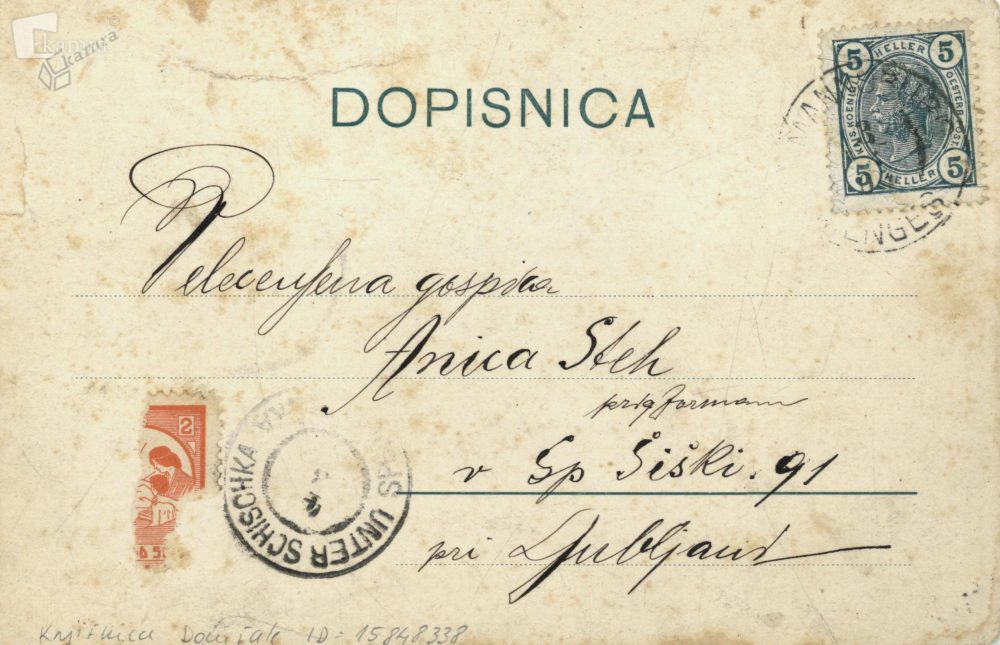 kamra
kamra
DOPISNICA
5 HELLER 5
KAIS.KOENIGL. OESTERR.POST
5 HELLER 5
MENGEŠ
Velecenjena gospica
Anica Steh
pri g
v Sp Šiški. 91
pri Ljubljani
2
SP. UNTER SCHISCHKA
Knjižnica Domžale ID = 15848338